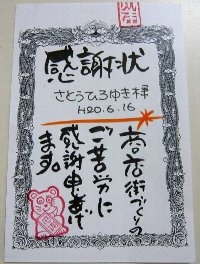 感謝状
さとうひろゆき様
H20.6.16
商店街づくりの
ご苦労に
感謝申あげ
ます。